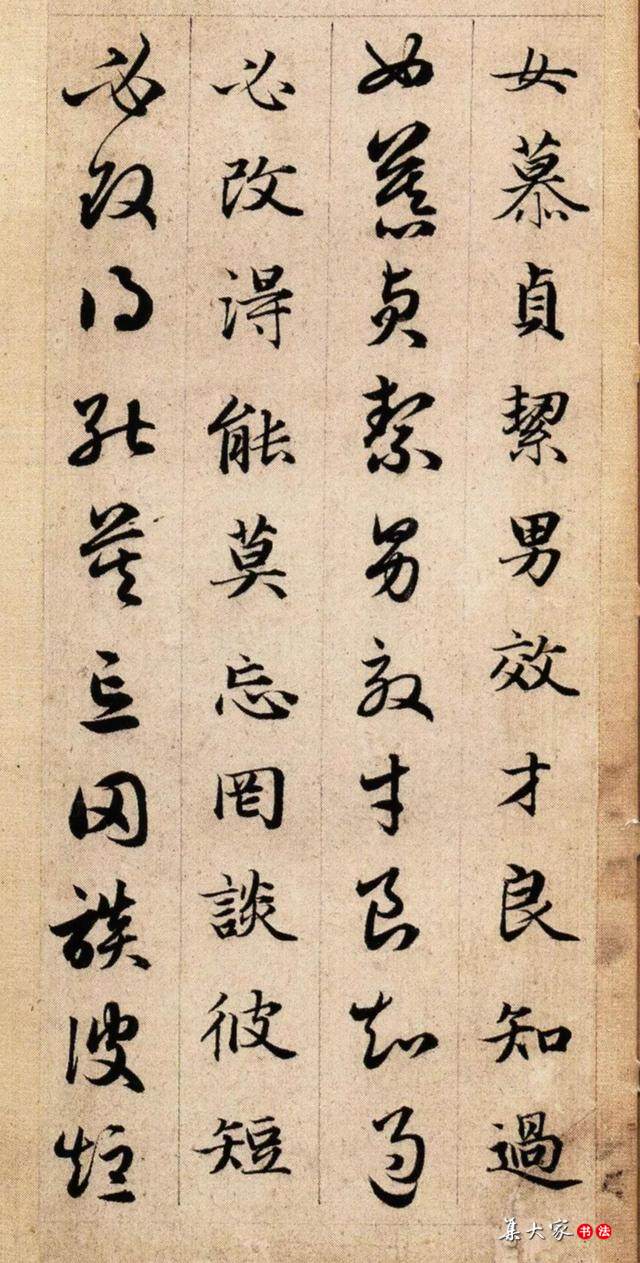 女慕貞絜男效才良知過
女慕貞絜男效才良知過
必改得能莫忘罔談彼短
必改得能莫忘罔談彼短
集大家书法